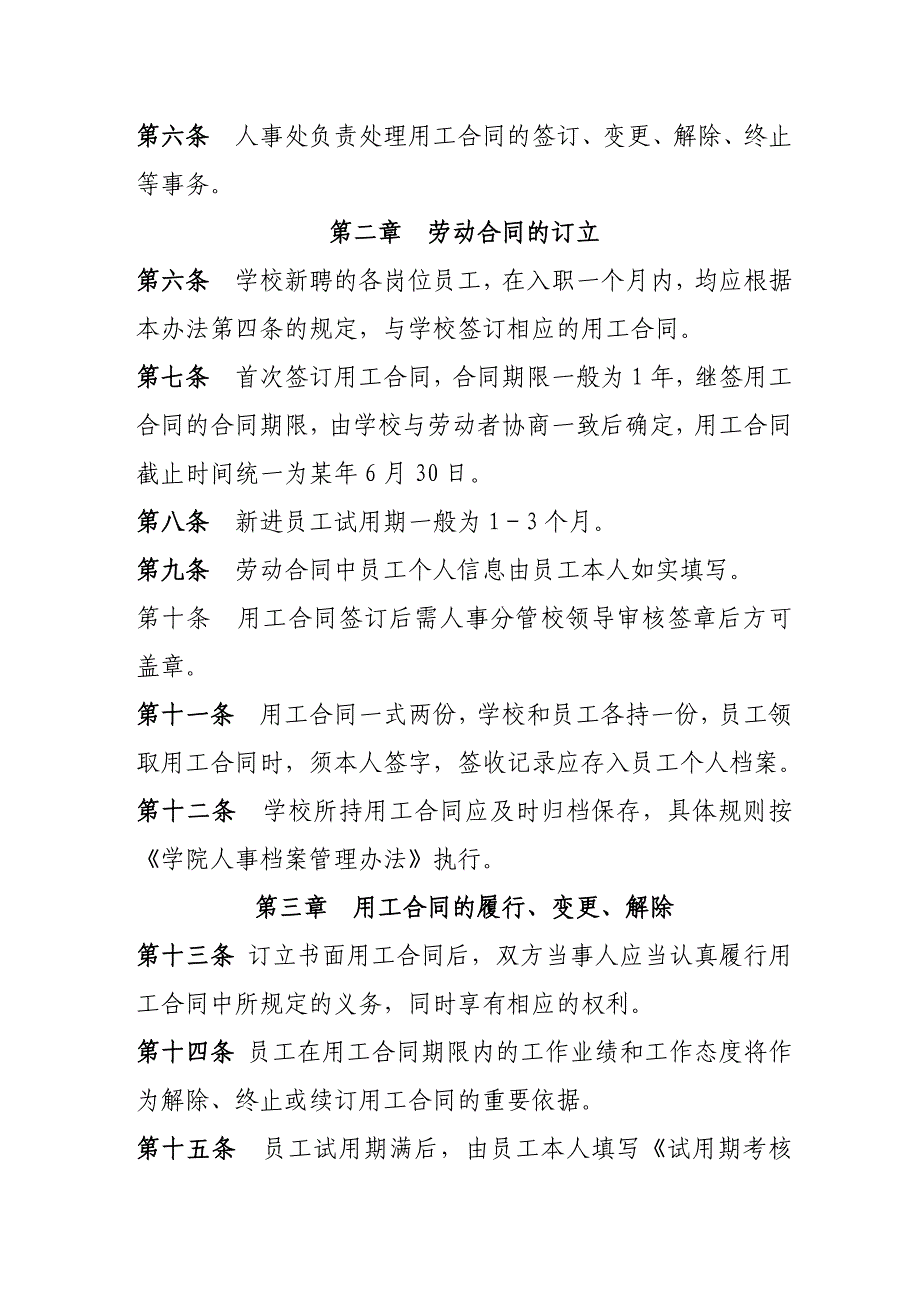 第六条　人事处负责处理用工合同的签订、变更、解除、终止
等事务。
第二章　劳动合同的订立
第六条　学校新聘的各岗位员工，在入职一个月内，均应根据
本办法第四条的规定，与学校签订相应的用工合同。
第七条　首次签订用工合同，合同期限一般为 1 年，继签用工
合同的合同期限，由学校与劳动者协商一致后确定，用工合同
截止时间统一为某年 6 月 30 日。
第八条　新进员工试用期一般为 1－3 个月。
第九条　劳动合同中员工个人信息由员工本人如实填写。
第十条　用工合同签订后需人事分管校领导审核签章后方可
盖章。
第十一条　用工合同一式两份，学校和员工各持一份，员工领
取用工合同时，须本人签字，签收记录应存入员工个人档案。
第十二条　学校所持用工合同应及时归档保存，具体规则按
《学院人事档案管理办法》执行。
第三章　用工合同的履行、变更、解除
第十三条 订立书面用工合同后，双方当事人应当认真履行用
工合同中所规定的义务，同时享有相应的权利。
第十四条 员工在用工合同期限内的工作业绩和工作态度将作
为解除、终止或续订用工合同的重要依据。
第十五条　员工试用期满后，由员工本人填写《试用期考核